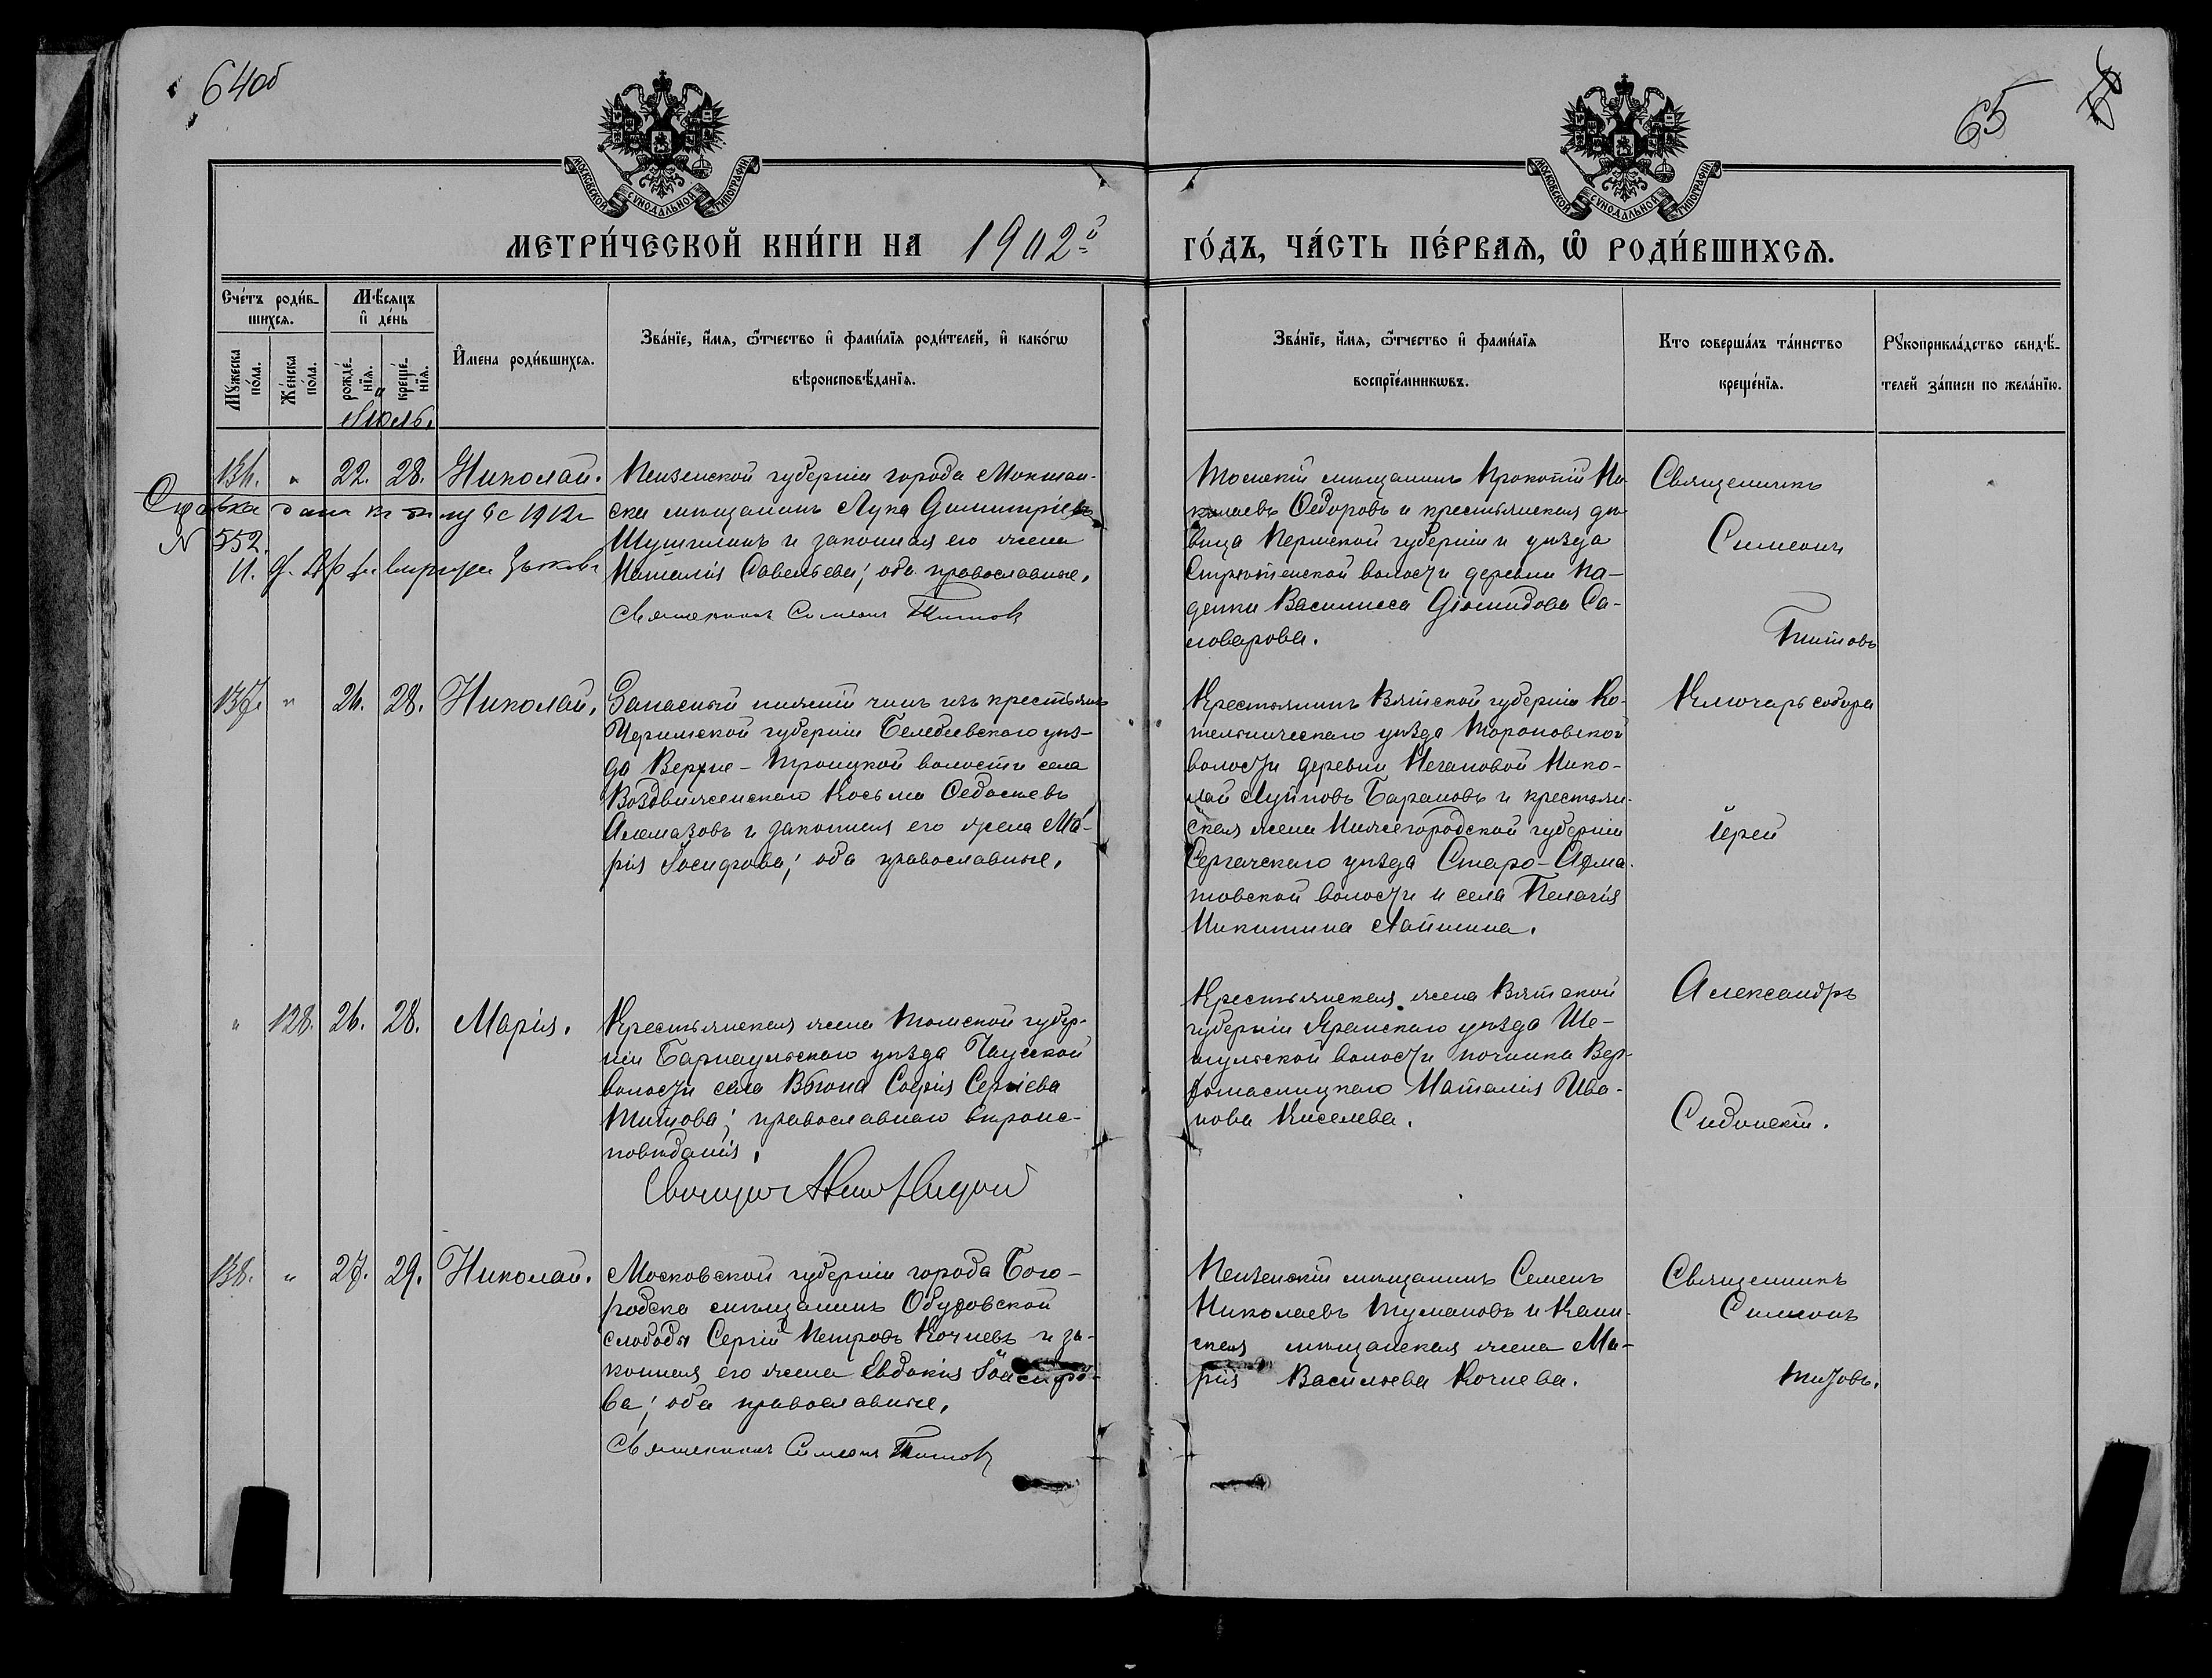 64об
65
МОСКОВСКОЙ СѴНОДАЛЬНОЙ ТИПОГРАФІИ
МОСКОВСКОЙ СѴНОДАЛЬНОЙ ТИПОГРАФІИ
МЕТРИ́ЧЕСКОЙ КНИ́ГИ НА 1902й ГО́ДЪ, ЧА́СТЬ ПЕ́РВАѦ, Ѡ҆ РОДИ́ВШИХСѦ.
Сче́тъ роди́в-
шихсѧ.
Мꙋ́жеска по́ла.
Же́нска по́ла.
Мѣ́сѧцъ
и҆ де́нь
рожде́-
нїѧ.
креще́-
нїѧ.
Июль.
И҆мена роди́вшихсѧ.
Зва́нїе, и҆́мѧ, ѻ҆́тчество и҆ фами́лїѧ роди́телей, и҆ како́гѡ
вѣроисповѣ́данїѧ.
Зва́нїе, и҆́мѧ, ѻ҆́тчество и҆ фами́лїѧ
воспрїе́мникѡвъ.
Кто соверша́лъ та́инство
креще́нїѧ.
Рꙋкоприкла́дство свидѣ́-
телей за́писи по жела́нїю.
136. " 22. 28. Николай.
Пензенской губерніи города Мокшан-
ска мѣщанинъ Лука Димитріевъ
Шушилинъ и законная его жена
Наталія Савельева; оба православные.
Священникъ Симеонъ Титовъ
Справка дана
1912г
№ 552.
Томскій мѣщанинъ Прокопій Ни-
колаевъ Ѳедоровъ и крестьянская дѣ-
вица Пермской губерніи и уѣзда
волости деревни Па-
денки Василисса Діомидова Са-
моварова.
Священникъ
Симеонъ
Титовъ
137. " 26. 28. Николай.
Запасный нижній чинъ изъ крестьянъ
Уфимской губерніи Белебеевскаго уѣз-
да Верхне-Троицкой волости села
Воздвиженскаго Косьма Ѳедосѣевъ
Алмазовъ и законная его жена Ма-
рія Іосифова; оба православные.
Крестьянинъ Вятской губерніи Ко-
тельническаго уѣзда Тороповской
волости деревни Негановой Нико-
лай Лупповъ Барановъ и крестьян-
ская жена Нижегородской губерніи
Сергачскаго уѣзда Старо-Ахма-
товской волости и села Пелагія
Никитина Лапшина.
Ключарь собора
іерей
Александръ
Сидонскій.
" 128. 26. 28. Марія.
Крестьянская жена Томской губер-
ніи Барнаульскаго уѣзда Чаусской
волости села Вьюна Софія Сергіева
Титова; православнаго вѣроис-
повѣданія.
Крестьянская жена Вятской
губерніи Яранскаго уѣзда Ше-
шульской волости починка Вер-
Наталія Ива-
нова Киселева.
138. " 27. 29. Николай.
Московской губерніи города Бого-
родска мѣщанинъ Обуховской
слободы Сергій Петровъ Кочневъ и за-
конная его жена Евдокія Іосифо-
ва; оба православные.
Священникъ Симеонъ Титовъ
Пензенскій мѣщанинъ Семенъ
Николаевъ Тумановъ и Каин-
ская мѣщанская жена Ма-
рія Васильева Кочнева.
Священникъ
Симеонъ
Титовъ.